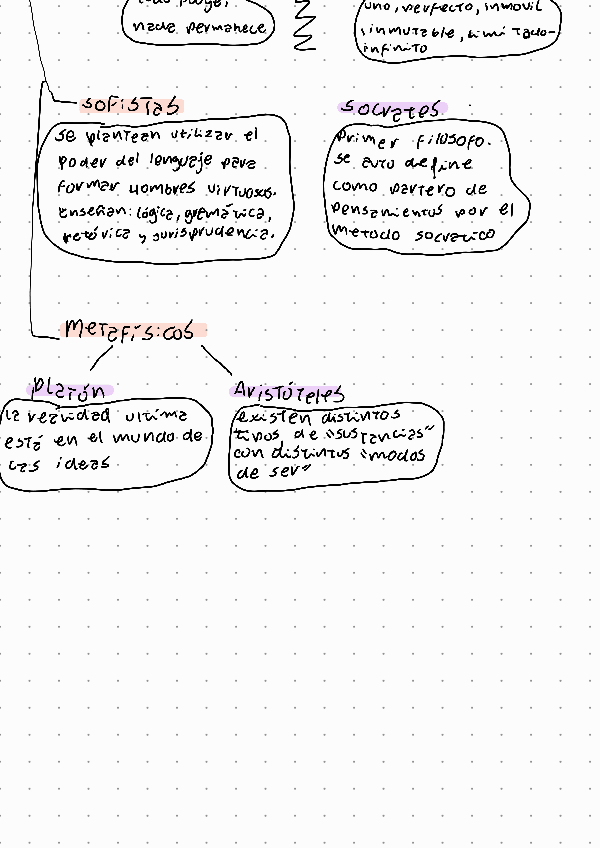 todo fluye,
nada permanece
uno, perfecto, inmovil
inmutable, limitado-
infinito
sofistas
se plantean utilizar el
poder del lenguaje para
formar hombres virtuosos.
Enseñan: lógica, gramática,
retórica y jurisprudencia.
socrates
Primer filósofo.
se auto define
como partero de
pensamientos por el
metodo socratico
metafisicos
platón
la realidad ultima
está en el mundo de
las ideas
Aristóteles
existen distintos
tipos de "sustancias"
con distintos "modos
de ser"